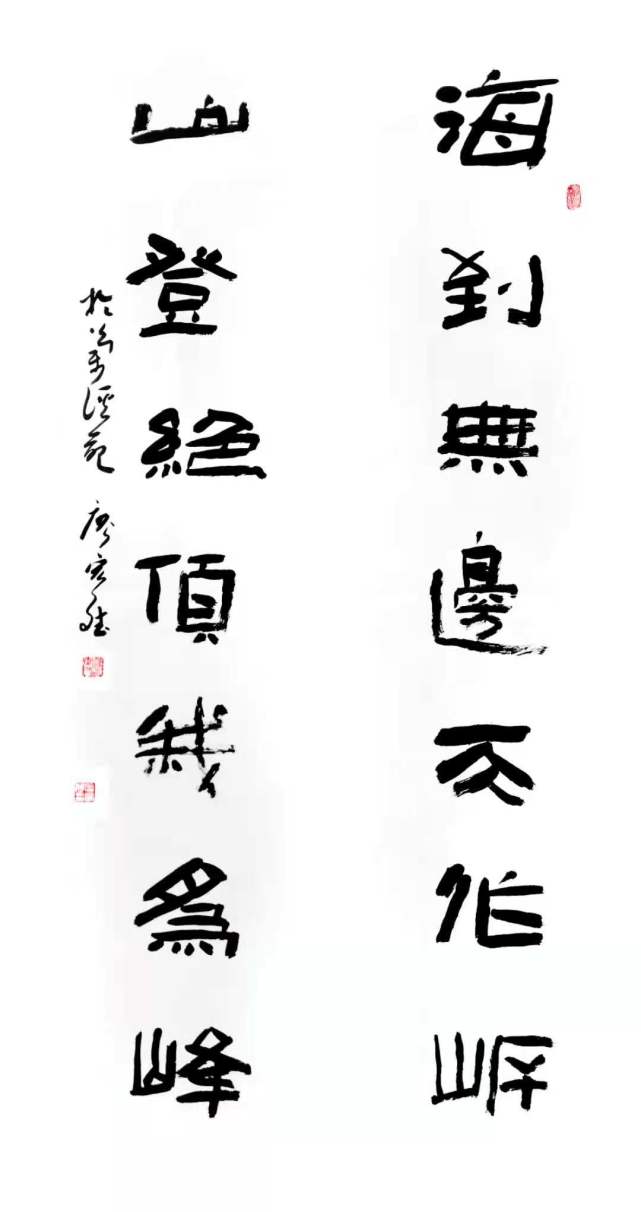 海到無邊天作岸
山登絕頂我為峰
於萬溪苑